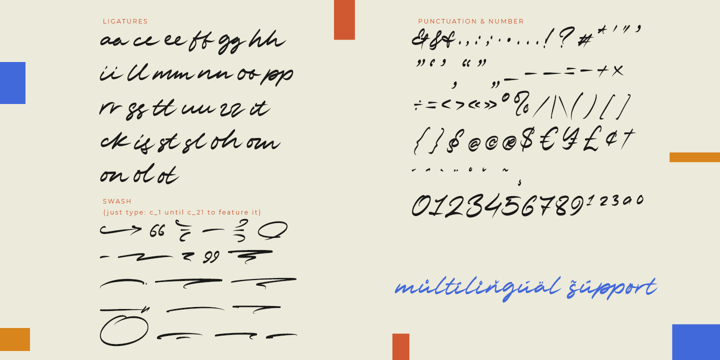 LIGATURES
aa cc ee ff gg hh
ii ll mm nn oo pp
rr ss tt uu zz it
ck is st sl oh om
on ol ot
SWASH
(just type: c_1 until c_21 to feature it)
PUNCTUATION & NUMBER
& & . , : ; · . … ! ? # * ' " ' '
" " , " " „ _ – — = - + ×
÷ = < > « » ° % / | \ ( ) [ ]
{ } $ @ @ @ $ € ¥ £ ¢ †
0123456789 1 2 3 a o
multilingual support